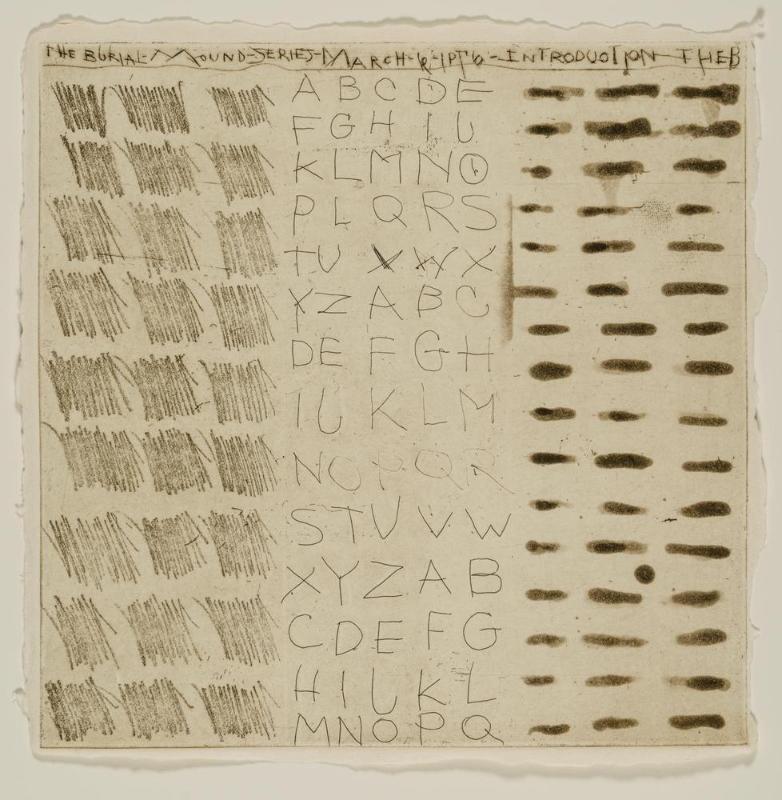 THE BURIAL-MOUND-SERIES-MARCH-6-1PT6-INTRODUCTION THEB
A B C D E
F G H I U
K L M N O
P L Q R S
T U X W X
Y Z A B C
D E F G H
I U K L M
N O P Q R
S T U V W
X Y Z A B
C D E F G
H I U K L
M N O P Q